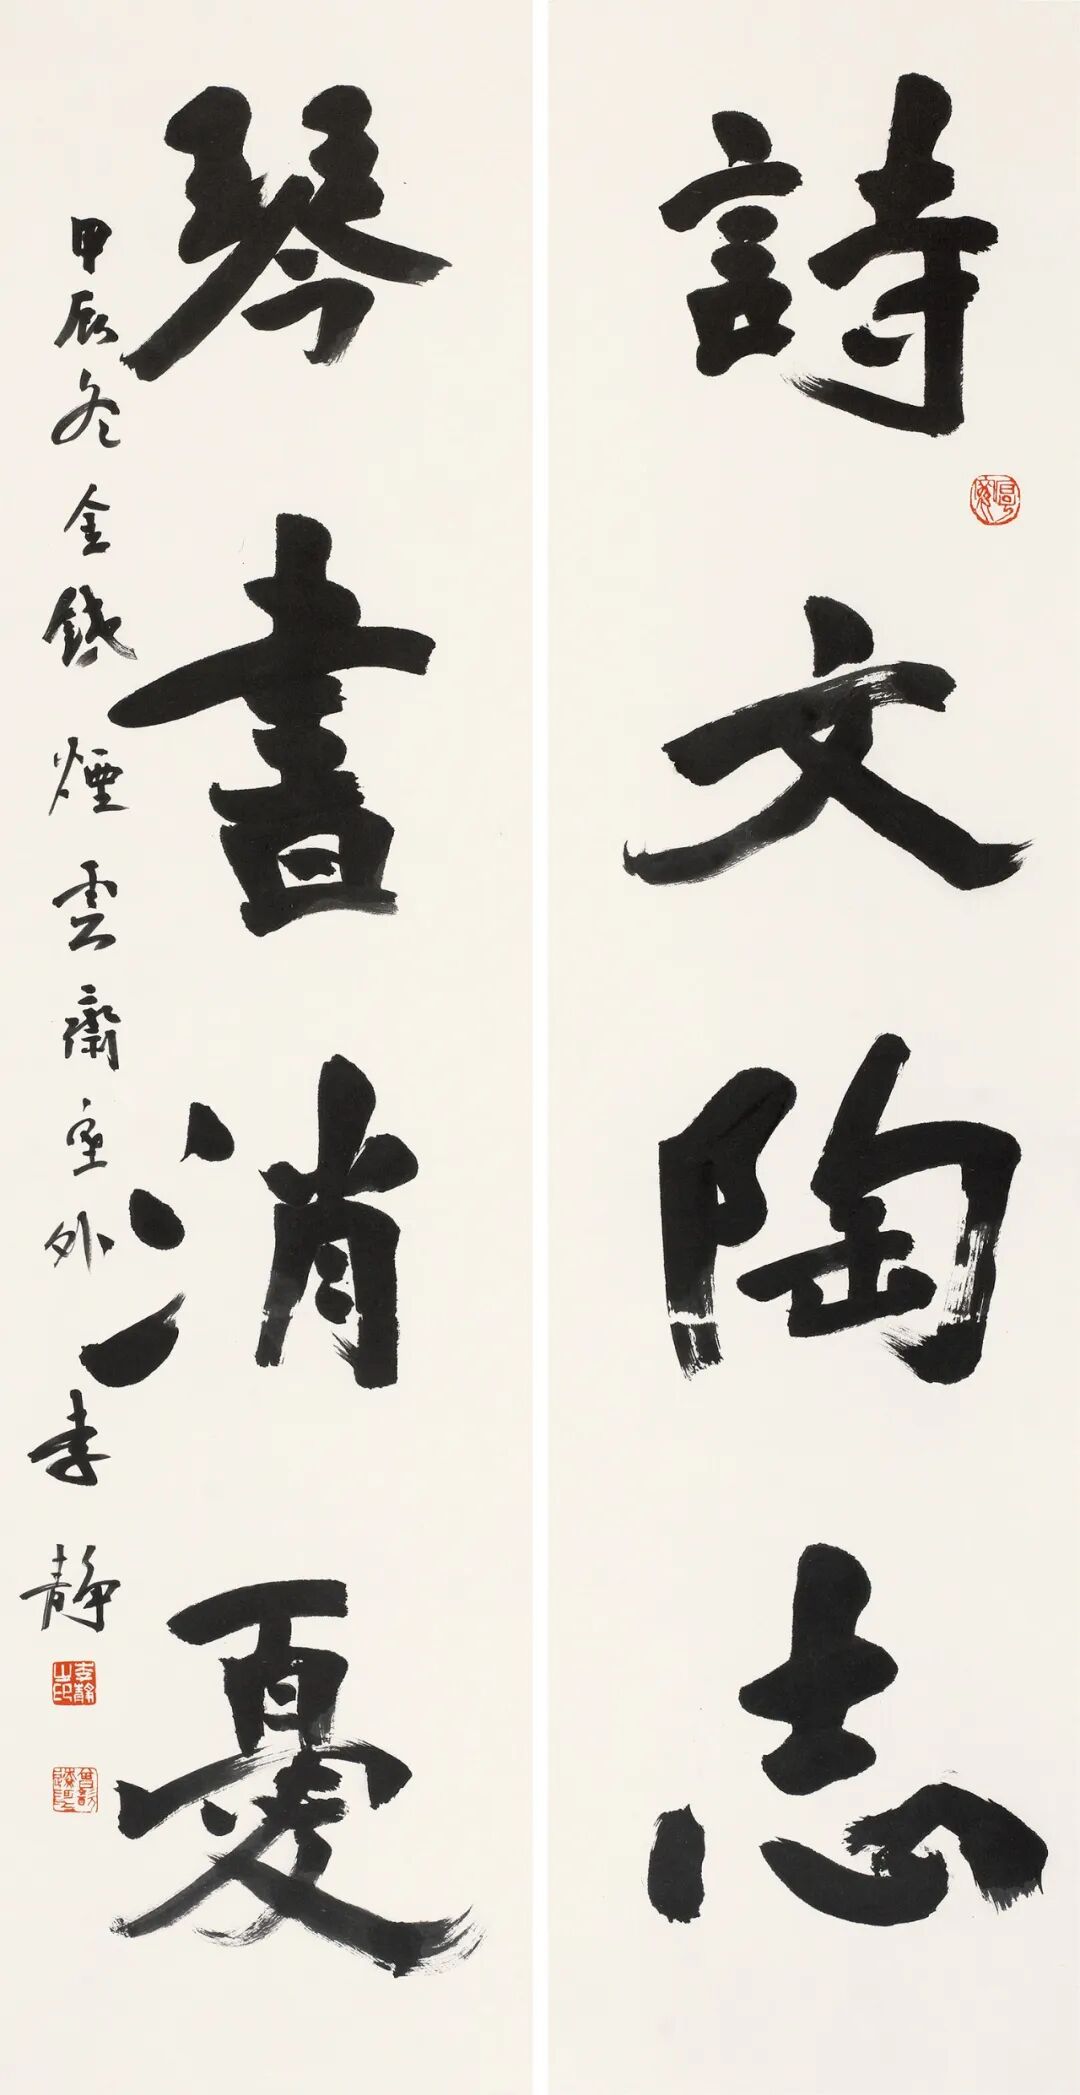 詩文陶志
琴書消憂
甲辰冬金鉞煙雲齋室外李靜
李靜之印